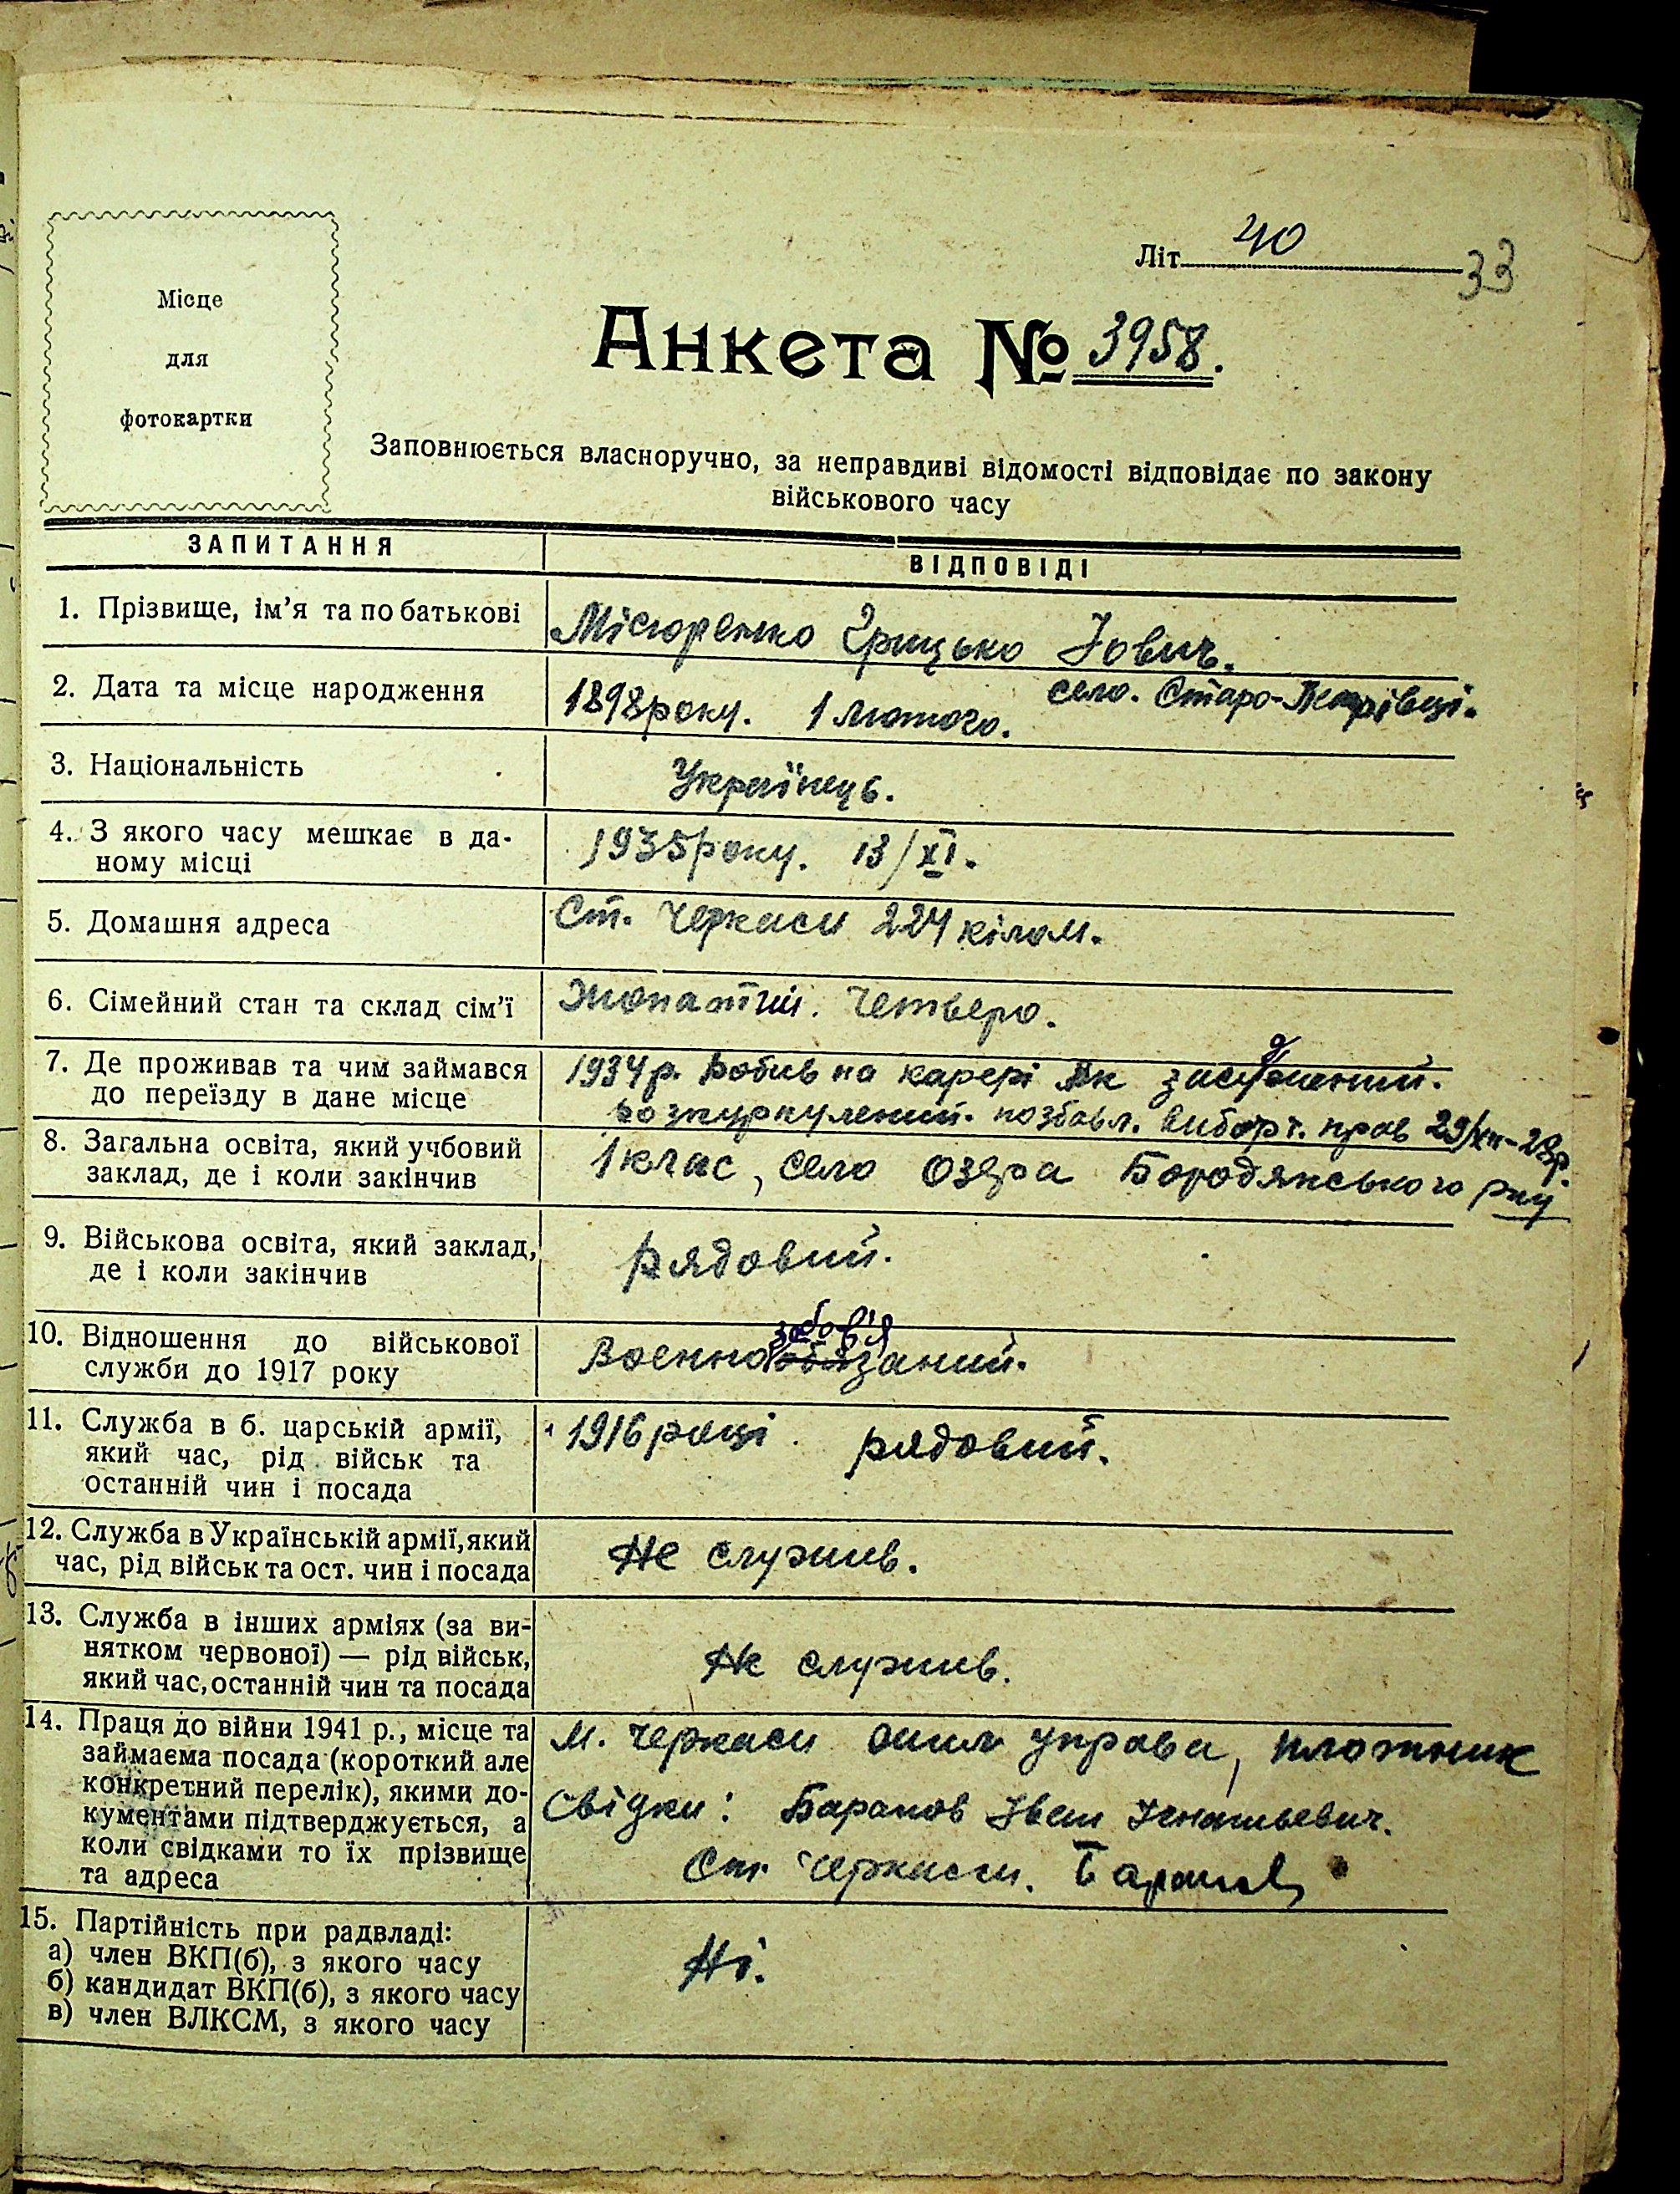 Літ 40
33
Місце
для
фотокартки
Анкета № 3958.
Заповнюється власноручно, за неправдиві відомості відповідає по закону
військового часу
ЗАПИТАННЯ
ВІДПОВІДІ
1. Прізвище, ім'я та по батькові
Місюренко Грицько Йович.
2. Дата та місце народження
1898 року. 1 Лютого. село. Старо-Петрівці.
3. Національність
Українець.
4. З якого часу мешкає в да-
ному місці
1935 року. 13/XI.
5. Домашня адреса
Ст. Черкаси 224 кілом.
6. Сімейний стан та склад сім'ї
Жонатий. Четверо.
7. Де проживав та чим займався
до переїзду в дане місце
1934 р. Робив на карері Як засудженний.
розкуркулений. позбавл. виборч. прав 29/XII-28р.
8. Загальна освіта, який учбовий
заклад, де і коли закінчив
1 клас, село Озера Бородянського р-ну
9. Військова освіта, який заклад,
де і коли закінчив
Рядовий.
10. Відношення до військової
служби до 1917 року
забов'я
Военнообязаний.
11. Служба в б. царській армії,
який час, рід військ та
останній чин і посада
1916 році. рядовий.
12. Служба в Українській армії, який
час, рід військ та ост. чин і посада
Не служив.
13. Служба в інших арміях (за ви-
нятком червоної) — рід військ,
який час, останній чин та посада
Не служив.
14. Праця до війни 1941 р., місце та
займаєма посада (короткий але
конкретний перелік), якими до-
кументами підтверджується, а
коли свідками то їх прізвище
та адреса
м. Черкаси управа, плотник
Свідки: Баранов Іван Ігнатьевич.
Ст. Черкаси. Баранов
15. Партійність при радвладі:
а) член ВКП(б), з якого часу
б) кандидат ВКП(б), з якого часу
в) член ВЛКСМ, з якого часу
Ні.